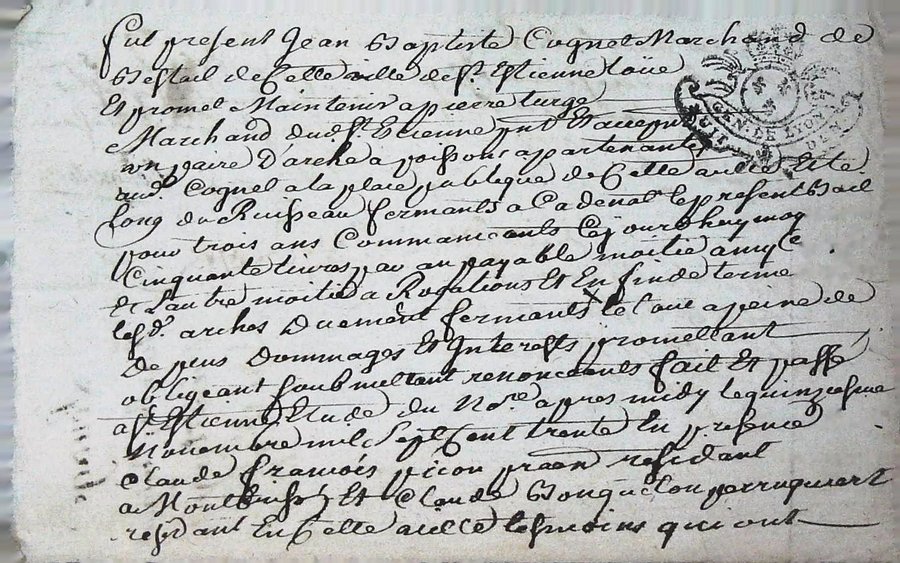 fut present Jean Baptiste Cognet Marchand de
Bestail de Cette ville de St Estienne loüe
Et promet Maintenir a pierre turge
Marchand dud. St Estienne pnt Et accept
un paire D'arche a poissons appartenants
aud. Cognet a la place publique de Cette ville Et le
Long du Ruisseau fermants a Cadenat le present Bail
pour trois ans Commancants Cejourdhuy moy
Cinquante livres par an payable moitié a
et L'autre moitié a Rogations Et En fin de terme
lesd. arches Duement fermants le tout a peine de
De peus Dommages Et Interests promettant
obligeant soubmettant renoncants fait Et passé
a St Estienne Etude du Nore apres midy le quinzesme
Novembre mil Sept Cent trente En presence
Claude françois picon praen residant
a Et Claude perruquiert
resdant En Cette ville tesmoins qui ont
GEN. DE LION